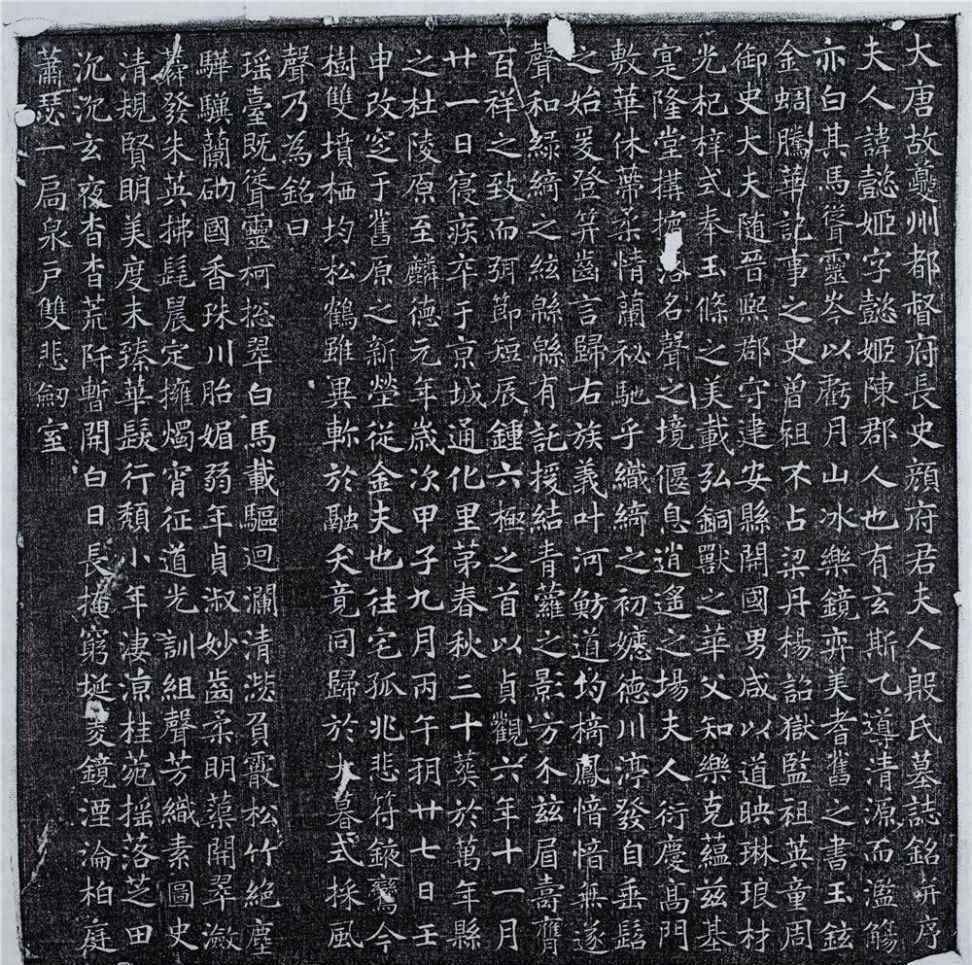 大唐故夔州都督府長史顏府君夫人殷氏墓誌銘并序
夫人諱懿姬字懿姬陳郡人也有玄斯乙導清源而濫觴
亦白其馬聳靈岑以虧月山冰樂鏡弈美耆舊之書玉鉉
金蜩騰華記事之史曾祖不占梁丹楊詔獄監祖英童周
御史大夫随晉熙郡守建安縣開國男咸以道映琳琅材
光杞梓式奉玉條之美載弘銅獸之華父知樂克蘊茲基
寔隆堂搆落名聲之境偃息逍遙之場夫人衍慶高門
敷華休蒂柔情蘭祕馳乎織綺之初嬺德川渟發自垂髫
之始爰登笄齒言歸右族義叶河魴道均樀鳳愔愔無遂
聲和綠綺之絃緜緜有託授結青蘿之影方介茲眉壽膺
百祥之致而弭節短辰鍾六極之首以貞觀六年十一月
廿一日寢疾卒于京城通化里第春秋三十葬於萬年縣
之杜陵原至麟德元年歲次甲子九月丙午朔廿七日壬
申改窆于舊原之新塋從金夫也往宅孤兆悲符鏡鸞今
樹雙墳栖均松鶴雖異軫於融矣竟同歸於大暮式採風
聲乃為銘曰
瑶臺既聳靈柯揔翠白馬載驅迴瀾清澨負霰松竹絕塵
驊驥蘭砌國香珠川胎媚弱年貞淑妙齒柔明蕖開翠瀲
蕣發朱英拂髦晨定擁燭宵征道光訓組聲芳織素圖史
清規賢明美度未臻華髮行頹小年淒涼桂苑摇落芝田
沉沉玄夜杳杳荒阡暫開白日長掩窮埏菱鏡湮淪柏庭
蕭瑟一扃泉戶雙悲劒室